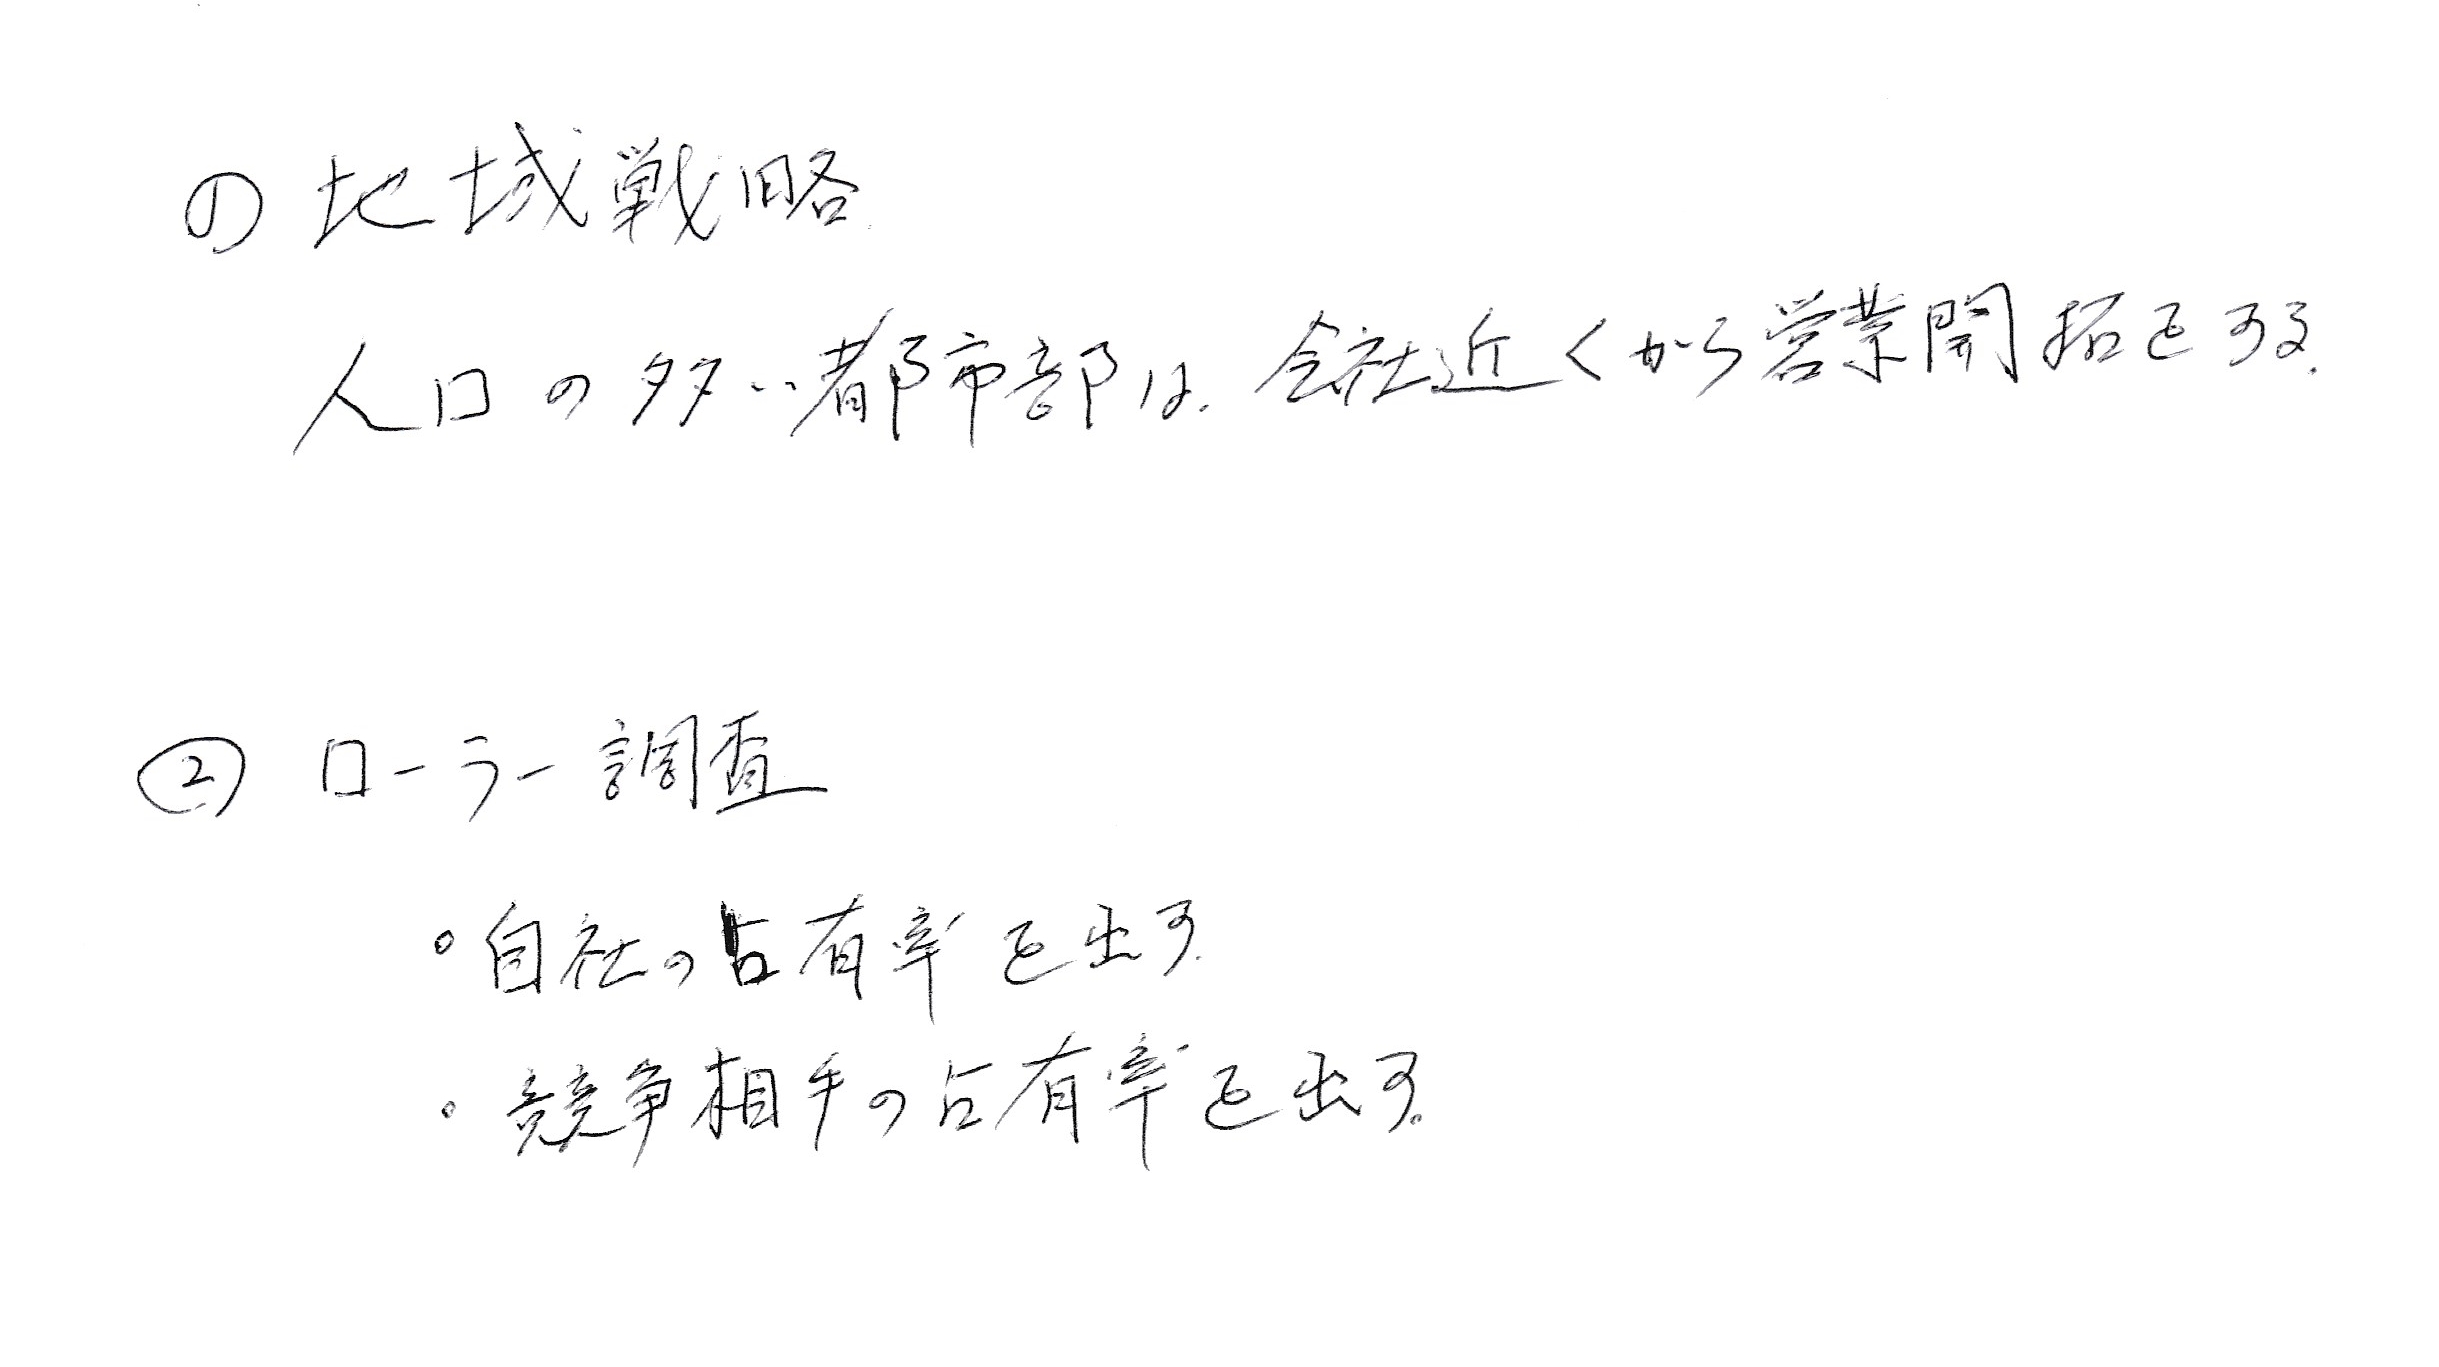 ① 地域戦略
人口の多い都市部は、会社近くから営業開拓をする。
② ローラー調査
・自社の占有率を出す。
・競争相手の占有率を出す。